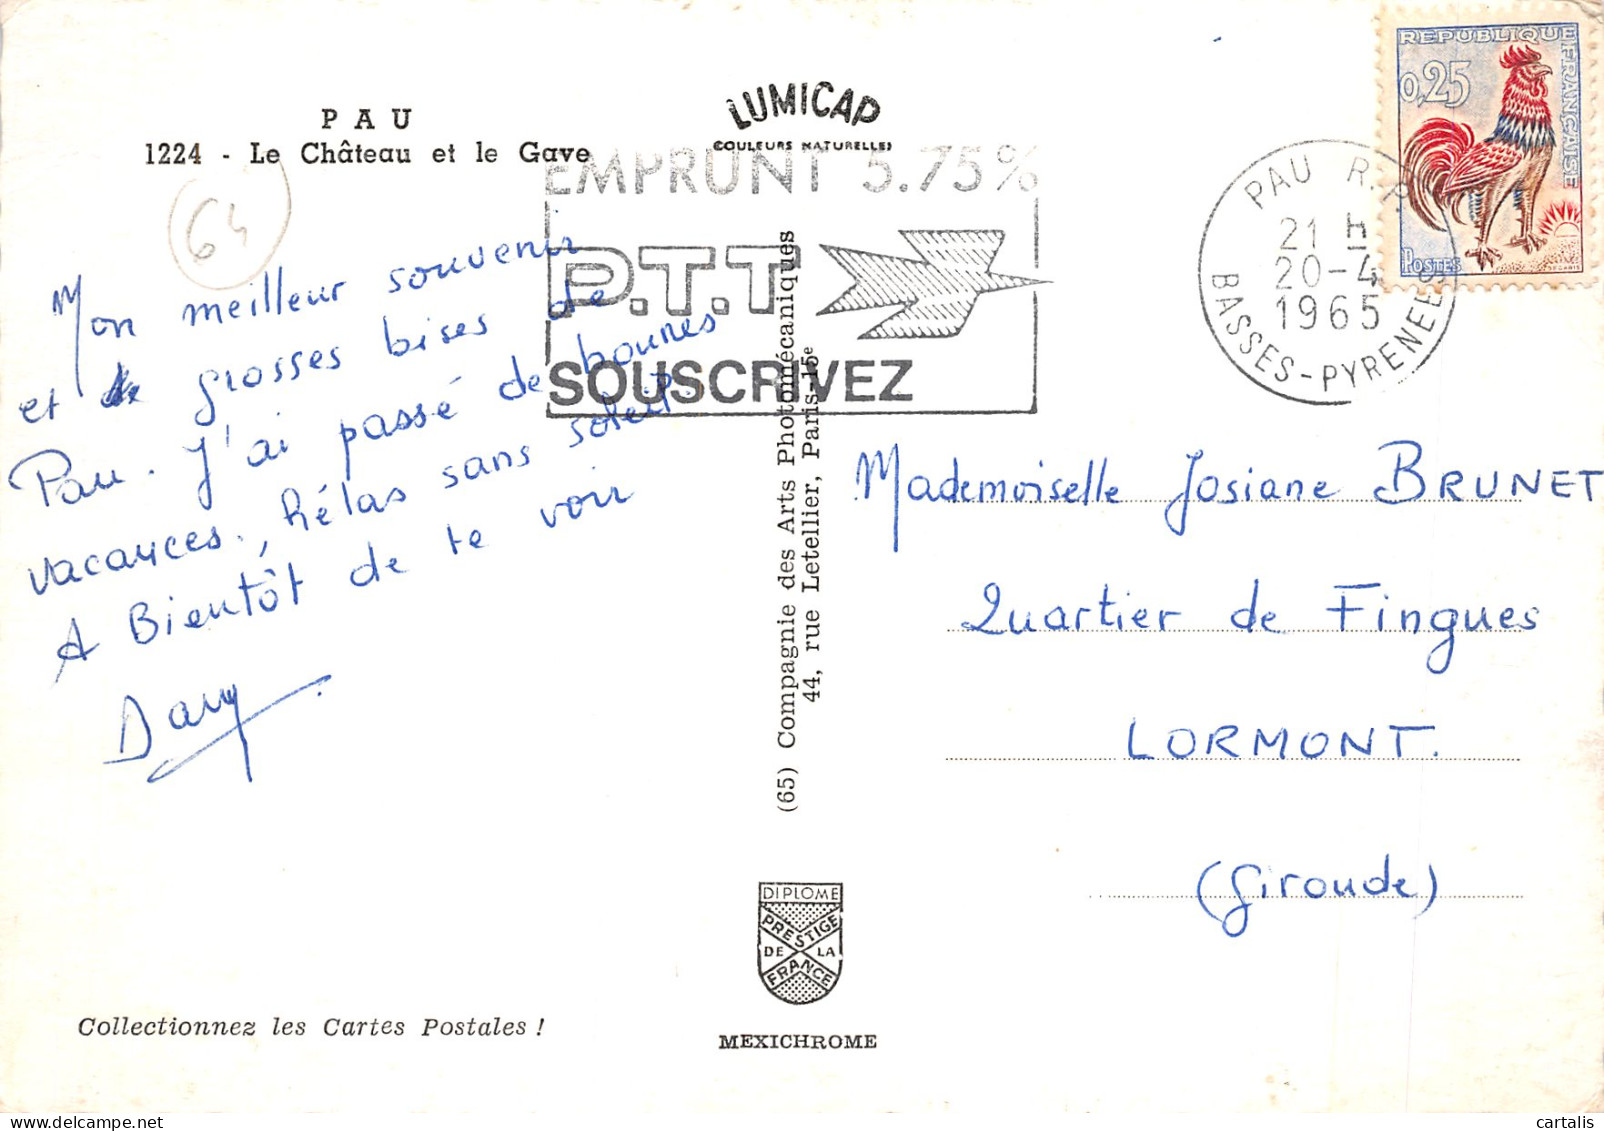 PAU
1224 - Le Château et le Gave
LUMICAP
COULEURS NATURELLES
EMPRUNT 5.75%
P.T.T
SOUSCRIVEZ
REPUBLIQUE FRANÇAISE
0,25
POSTES
DECARIS
PAU R.P.
21 H
20-4
1965
BASSES-PYRENEES
64
Mon meilleur souvenir
et de grosses bises de
Pau. J'ai passé de bonnes
vacances, hélas sans soleil.
A Bientôt de te voir
Dany
(65) Compagnie des Arts Photomécaniques
44, rue Letellier, Paris-15e
Mademoiselle Josiane BRUNET
Quartier de Fingues
LORMONT.
(Gironde)
DIPLOME
PRESTIGE
DE LA
FRANCE
MEXICHROME
Collectionnez les Cartes Postales !
cartalis